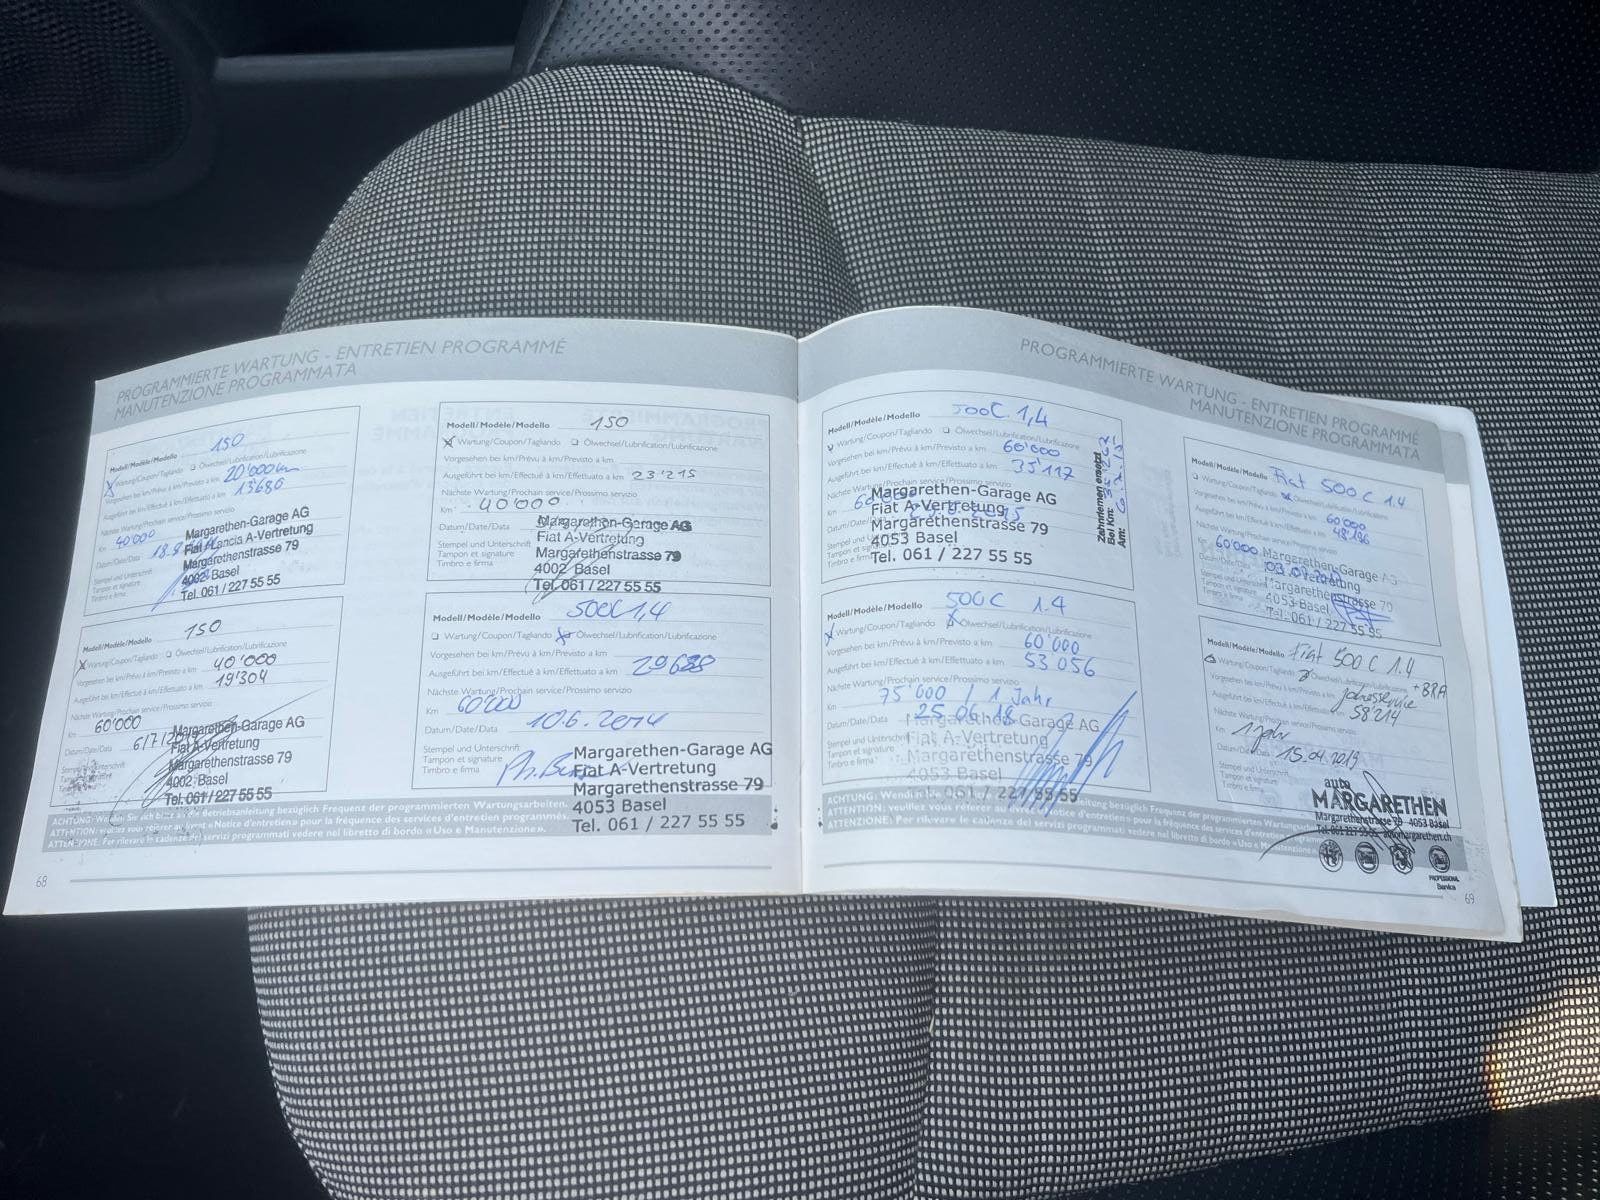 PROGRAMMIERTE WARTUNG - ENTRETIEN PROGRAMMÉ
MANUTENZIONE PROGRAMMATA
Modell/Modèle/Modello 150
Wartung/Coupon/Tagliando Ölwechsel/Lubrification/Lubrificazione
Vorgesehen bei km/Prévu à km/Previsto a km 20'000km
Ausgeführt bei km/Effectué à km/Effettuato a km 13'680
Nächste Wartung/Prochain service/Prossimo servizio
Km 40'000
Datum/Date/Data 18.8
Stempel und Unterschrift
Tampon et signature
Timbro e firma
Margarethen-Garage AG
Fiat Lancia A-Vertretung
Margarethenstrasse 79
4002 Basel
Tel. 061 / 227 55 55
Modell/Modèle/Modello 150
Wartung/Coupon/Tagliando Ölwechsel/Lubrification/Lubrificazione
Vorgesehen bei km/Prévu à km/Previsto a km 40'000
Ausgeführt bei km/Effectué à km/Effettuato a km 19'304
Nächste Wartung/Prochain service/Prossimo servizio
Km 60'000
Datum/Date/Data 6/7/
Margarethen-Garage AG
Fiat A-Vertretung
Margarethenstrasse 79
4002 Basel
Tel. 061 / 227 55 55
Modell/Modèle/Modello 150
Wartung/Coupon/Tagliando Ölwechsel/Lubrification/Lubrificazione
Vorgesehen bei km/Prévu à km/Previsto a km
Ausgeführt bei km/Effectué à km/Effettuato a km 23'215
Nächste Wartung/Prochain service/Prossimo servizio
Km 40'000
Datum/Date/Data
Stempel und Unterschrift
Tampon et signature
Timbro e firma
Margarethen-Garage AG
Fiat A-Vertretung
Margarethenstrasse 79
4002 Basel
Tel. 061 / 227 55 55
Modell/Modèle/Modello 500C 1,4
Wartung/Coupon/Tagliando Ölwechsel/Lubrification/Lubrificazione
Vorgesehen bei km/Prévu à km/Previsto a km
Ausgeführt bei km/Effectué à km/Effettuato a km
Nächste Wartung/Prochain service/Prossimo servizio
Km 60'000
Datum/Date/Data 10.6.2014
Stempel und Unterschrift
Tampon et signature
Timbro e firma
Margarethen-Garage AG
Fiat A-Vertretung
Margarethenstrasse 79
4053 Basel
Tel. 061 / 227 55 55
ACHTUNG: Wenden Sie sich bitte an die Betriebsanleitung bezüglich Frequenz der programmierten Wartungsarbeiten.
ATTENTION: veuillez vous référer au «Notice d'entretien» pour la fréquence des services d'entretien programmés.
ATTENZIONE: Per rilevare le cadenze dei servizi programmati vedere nel libretto di bordo «Uso e Manutenzione».
68
PROGRAMMIERTE WARTUNG - ENTRETIEN PROGRAMMÉ
MANUTENZIONE PROGRAMMATA
Modell/Modèle/Modello 500C 1,4
Wartung/Coupon/Tagliando Ölwechsel/Lubrification/Lubrificazione
Vorgesehen bei km/Prévu à km/Previsto a km 60'000
Ausgeführt bei km/Effectué à km/Effettuato a km 35'117
Nächste Wartung/Prochain service/Prossimo servizio
Km
Datum/Date/Data
Stempel und Unterschrift
Tampon et signature
Timbro e firma
Margarethen-Garage AG
Fiat A-Vertretung
Margarethenstrasse 79
4053 Basel
Tel. 061 / 227 55 55
Zahnriemen ersetzt
Bei Km:
Am:
Modell/Modèle/Modello 500C 1.4
Wartung/Coupon/Tagliando Ölwechsel/Lubrification/Lubrificazione
Vorgesehen bei km/Prévu à km/Previsto a km 60'000
Ausgeführt bei km/Effectué à km/Effettuato a km 53'056
Nächste Wartung/Prochain service/Prossimo servizio
Km 75'000 / 1 Jahr
Datum/Date/Data 25.06.18
Stempel und Unterschrift
Tampon et signature
Timbro e firma
Margarethen-Garage AG
Fiat A-Vertretung
Margarethenstrasse 79
4053 Basel
061 / 227 55 55
Modell/Modèle/Modello Fiat 500C 1.4
Wartung/Coupon/Tagliando Ölwechsel/Lubrification/Lubrificazione
Vorgesehen bei km/Prévu à km/Previsto a km 60'000
Ausgeführt bei km/Effectué à km/Effettuato a km
Nächste Wartung/Prochain service/Prossimo servizio
Km 60'000
Margarethen-Garage AG
Margarethenstrasse 79
4053 Basel
Tel. 061 / 227 55 55
Modell/Modèle/Modello Fiat 500C 1.4
Wartung/Coupon/Tagliando Ölwechsel/Lubrification/Lubrificazione +BRA
Vorgesehen bei km/Prévu à km/Previsto a km Jahresservice
Ausgeführt bei km/Effectué à km/Effettuato a km 58'214
Nächste Wartung/Prochain service/Prossimo servizio
Km 1 Jahr
Datum/Date/Data 15.04.2019
Stempel und Unterschrift
Tampon et signature
Timbro e firma
auto
MARGARETHEN
Margarethenstrasse 79 4053 Basel
PROFESSIONAL
Service
69